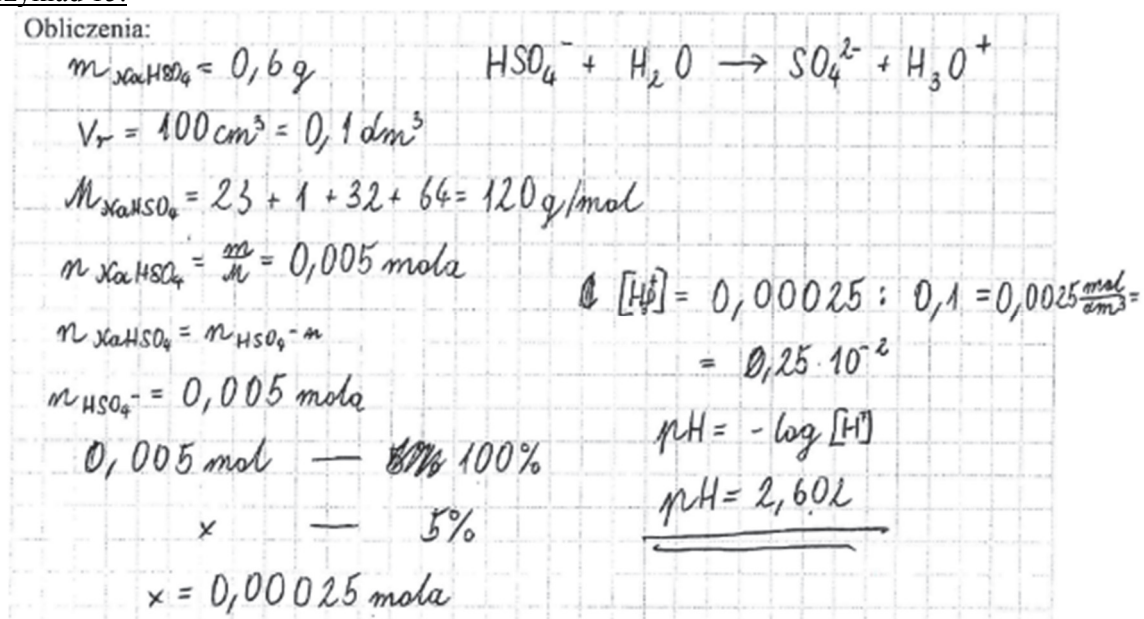 Obliczenia:
m NaHSO₄ = 0,6 g
HSO₄⁻ + H₂O → SO₄²⁻ + H₃O⁺
Vr = 100 cm³ = 0,1 dm³
M NaHSO₄ = 23 + 1 + 32 + 64 = 120 g/mol
n NaHSO₄ = m/M = 0,005 mola
n NaHSO₄ = n HSO₄⁻
n HSO₄⁻ = 0,005 mola
0,005 mol — 100%
x — 5%
x = 0,00025 mola
[H₃O⁺] = 0,00025 : 0,1 = 0,0025 mol/dm³ =
= 0,25 · 10⁻²
pH = - log [H⁺]
pH = 2,602